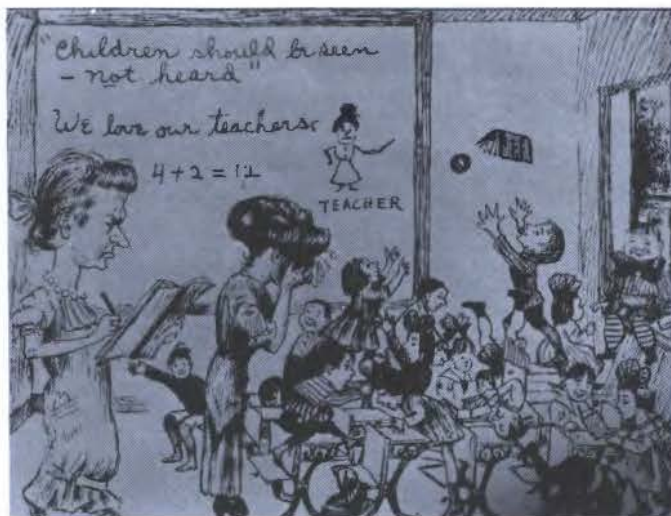 "Children should be seen
- not heard"
We love our teachers.
4 + 2 = 12
TEACHER